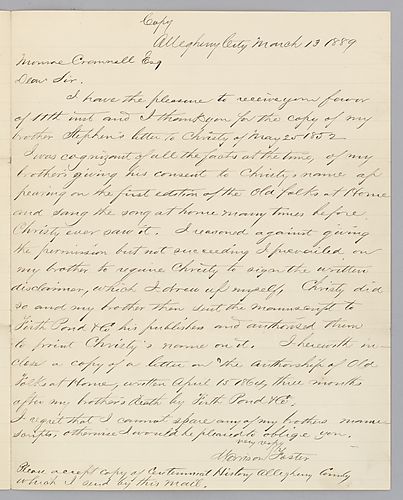 Copy
Allegheny City March 13 1889
Monroe Cromwell Esq
Dear Sir.
I have the pleasure to receive your favor
of 11th inst and I thank you for the copy of my
brother Stephen's letter to Christy of May 25 1852
I was cognizant of all the facts at the time, of my
brother's giving his consent to Christy's name ap
pearing on the first edition of the Old Folks at Home
and sang the song at home many times before
Christy ever saw it. I reasoned against giving
the permission but not succeeding I prevailed on
my brother to require Christy to sign the written
disclaimer, which I drew up myself, Christy did
so and my brother then sent the manuscript to
Firth Pond & Co. his publishers and authorised them
to print Christy's name on it. I herewith in-
close a copy of a letter on "the authorship of Old
Folks at Home, written April 15 1864, three months
after my brother's death by Firth Pond & Co.
I regret that I cannot spare any of my brothers manu
scripts, otherwise I would be pleased to oblige you,
very resply
Morrison Foster
Please accept copy of Centennial History Allegheny County
which I send by this mail.